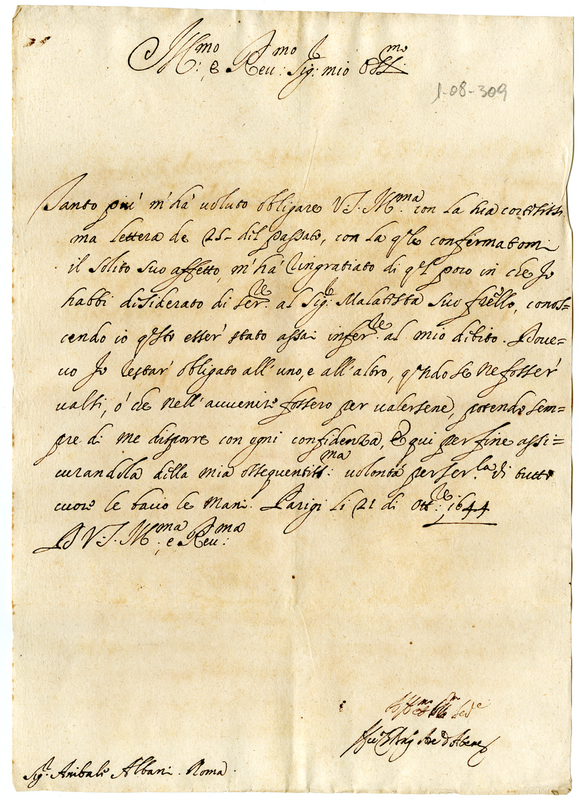 Ill.mo e Rev.mo Sig.r mio Oss.mo
1-08-309
Tanto piu' m'ha' voluto obligare V.S. Ill.ma con la sua cortesiss-
ma lettera de 25 del passato, con la q.le confermatomi
il solito suo affetto, m'ha' ringratiato di q.l poco in che Io
habbi desiderato di ser.le al Sig.r Malatista suo f.rello, conos-
cendo io q.sto esser' stato assai infer.re al mio debito. Doue-
uo Io restar' obligato all'uno, e all'altro, q.ndo se ne fosser'
ualsi, o' che nell'auuenire fossero per ualersene, potendo sem-
pre di me disporre con ogni confidenza, E qui per fine assi-
curandola della mia ossequentiss:ma uolontà per ser.la di tutto
cuore le bacio le mani. Parigi li 21 di Ott.re 1644
D V.S. Ill.ma e Reu.ma
Sig.r Anibale Albani. Roma.